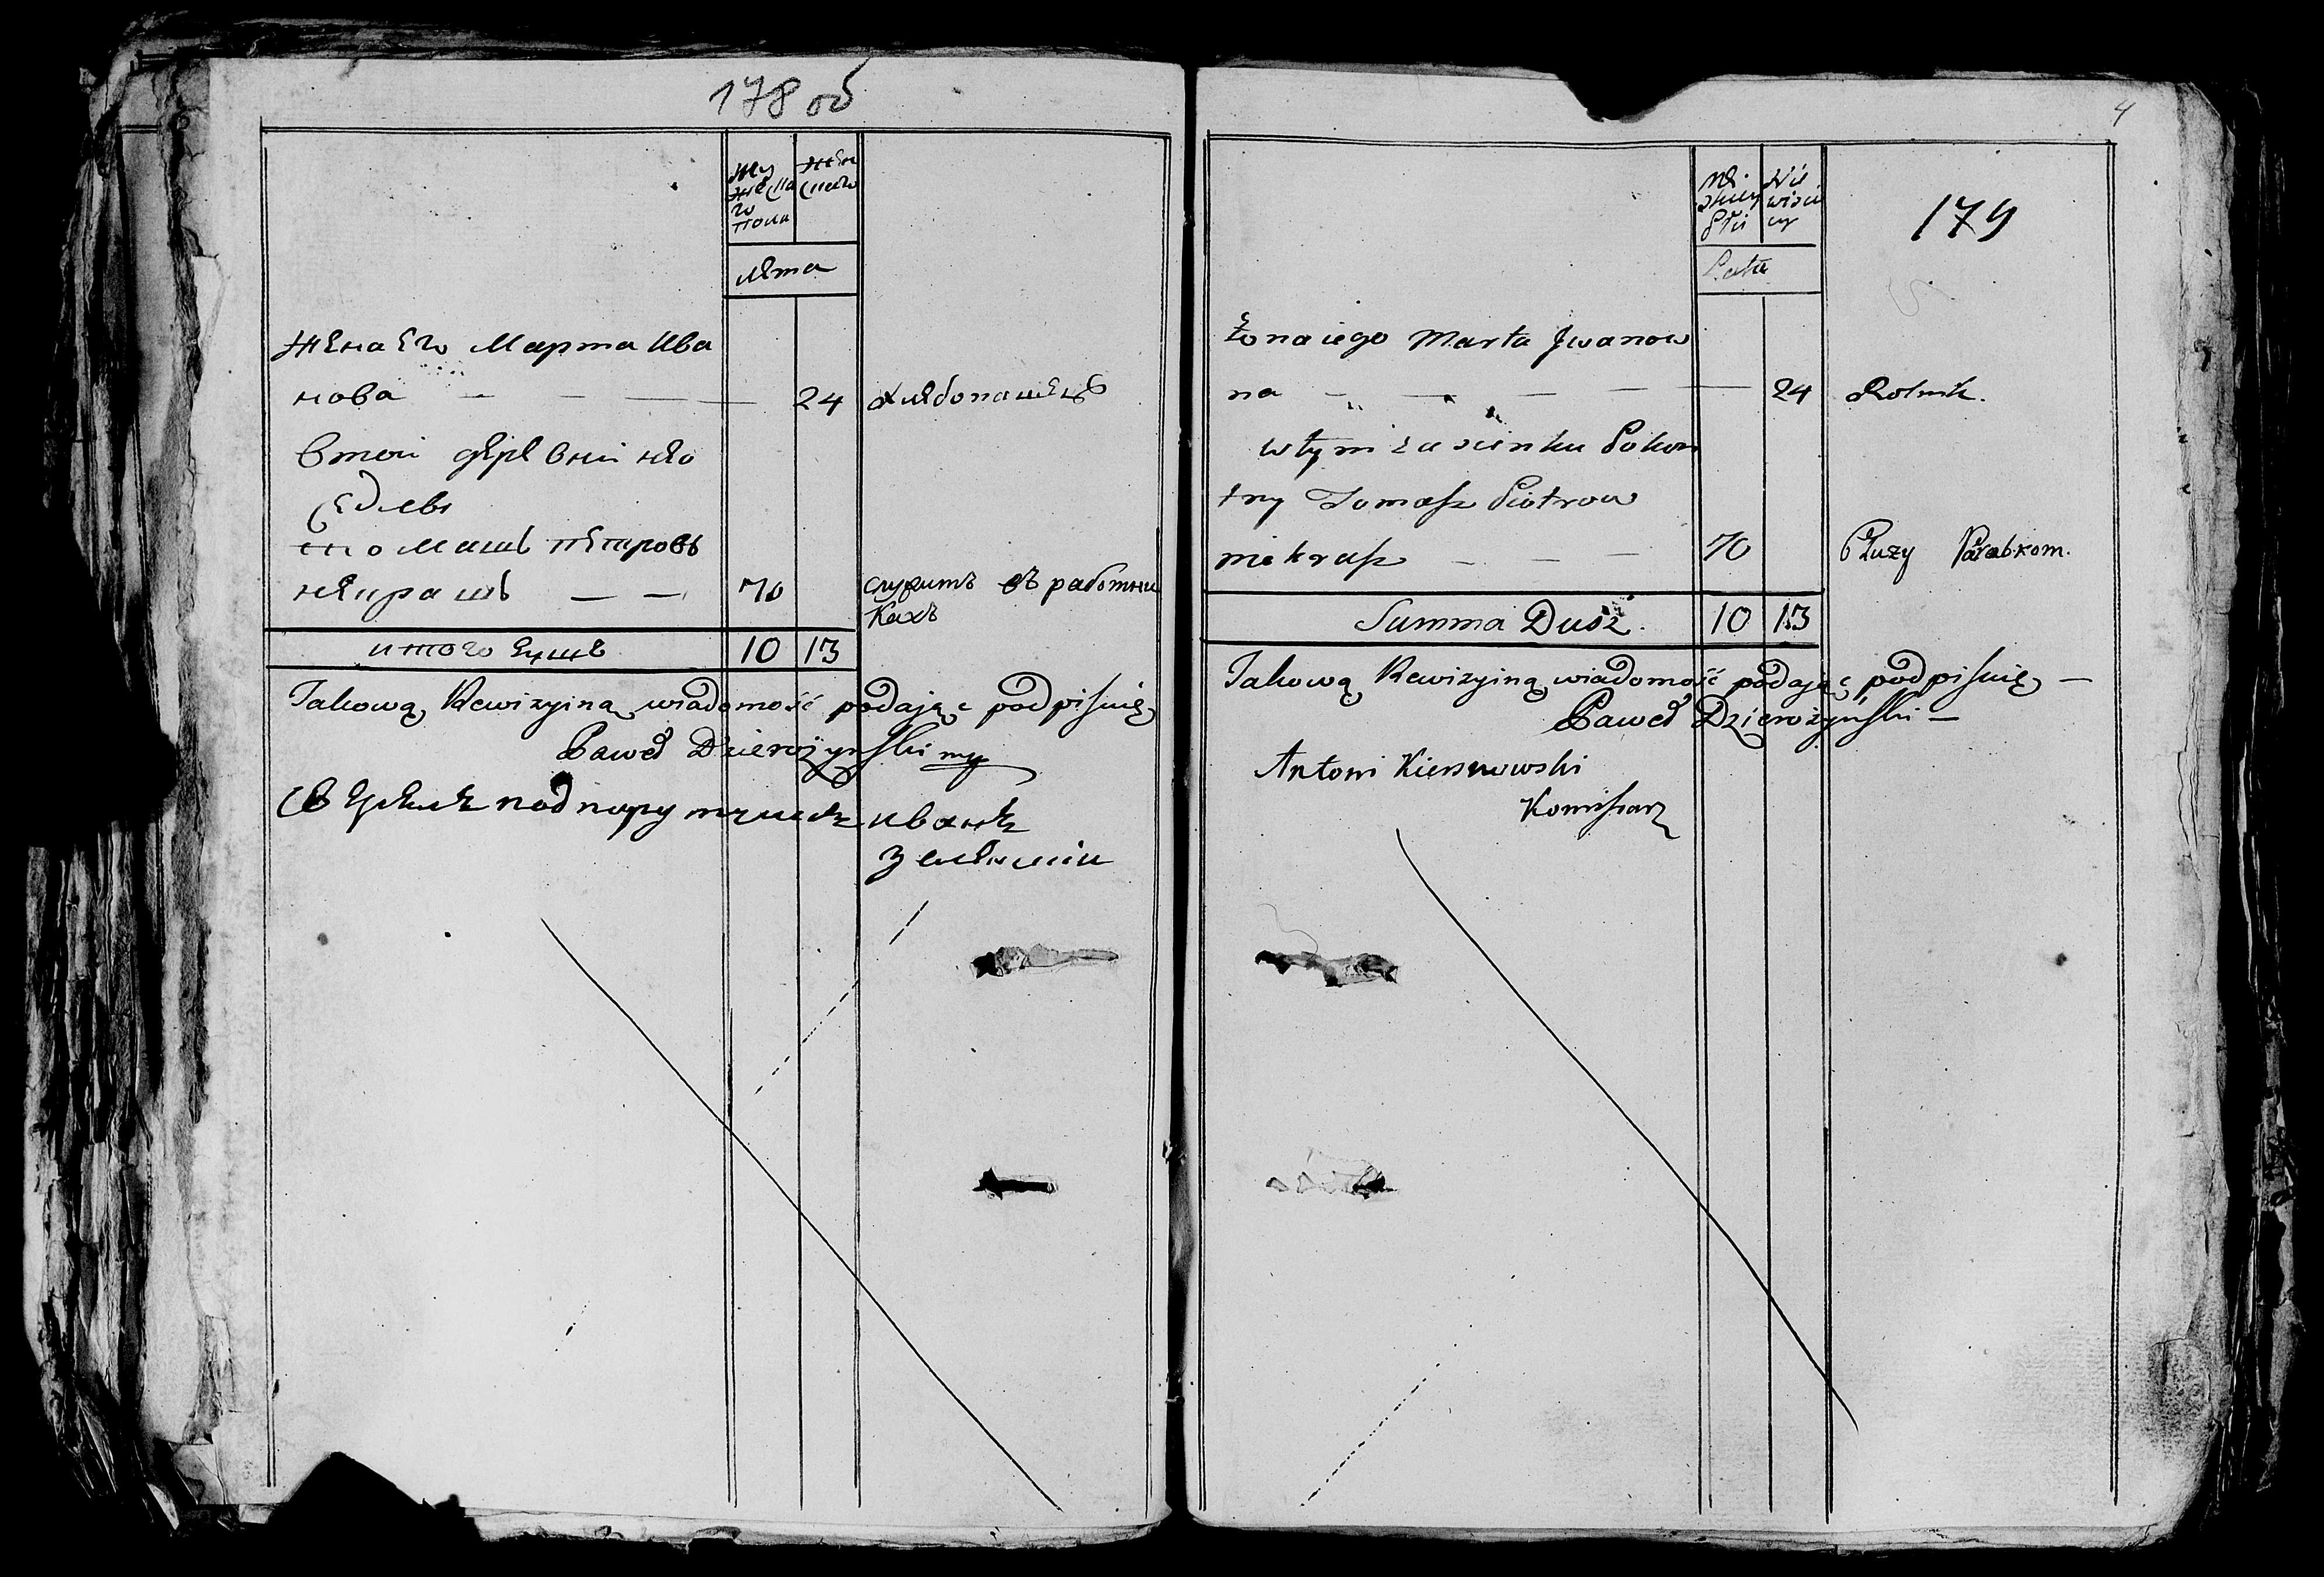 178 об
Му
жеска
го
пола
Жен
скаго
лета
жена его Марта Ива
нова — — — — 24 хлебопашець
втой деревни нео
седлы
томашь петровь
некрашь — — 70 служитъ въ работни
кахъ
итого душь 10 13
Takową Rewizyiną wiadomość podaiąc podpisuię
Paweł Dzierożyński mp
4
179
Męz
skiey
płci
Nie
wieści
ey
Lata
Żona iego Marta Jwanow
na — — — — 24 Rolnik.
w tym zascienku
Tomasz Piotrow
niekrasz — — 70 Słuzy Parabkom.
Summa Dusz. 10 13
Takową Rewizyiną wiadomość podaiąc podpisuię —
Paweł Dzierożyński —
Antoni Kiersnowski
Komisarz